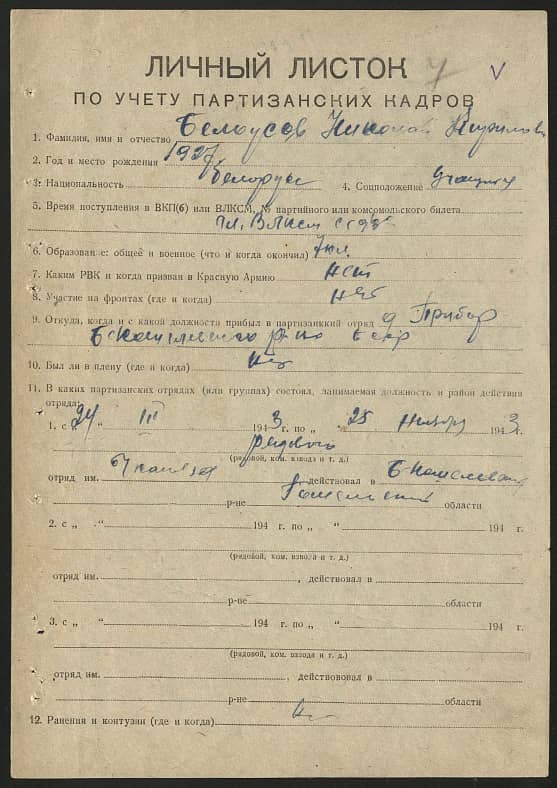 ЛИЧНЫЙ ЛИСТОК 7 V
ПО УЧЕТУ ПАРТИЗАНСКИХ КАДРОВ
1. Фамилия, имя и отчество Белоусов Николай Кирилович
2. Год и место рождения 1927
3. Национальность белорус 4. Соцположение учащийся
5. Время поступления в ВКП(б) или ВЛКСМ, № партийного или комсомольского билета
чл. ВЛКСМ с
6. Образование: общее и военное (что и когда окончил) 7 кл.
7. Каким РВК и когда призван в Красную Армию нет
8. Участие на фронтах (где и когда) нет
9. Откуда, когда и с какой должности прибыл в партизанский отряд д Прибор
Б-Кошелевского р-на БССР
10. Был ли в плену (где и когда) нет
11. В каких партизанских отрядах (или группах) состоял, занимаемая должность и район действия
отряда:
1. с „24 “ III 1943 г. по „ 25 “ ноября 1943 г.
рядового
(рядовой, ком. взвода и т. д.)
отряд им. Чкалова действовал в Б-Кошелевском
р-не Гомельской области
2. с „ “ 194 г. по „ “ 194 г.
(рядовой, ком. взвода и т. д.)
отряд им. , действовал в
р-не области
3. с „ “ 194 г. по „ “ 194 г.
(рядовой, ком. взвода и т. д.)
отряд им. , действовал в
р-не области
12. Ранения и контузии (где и когда) нет